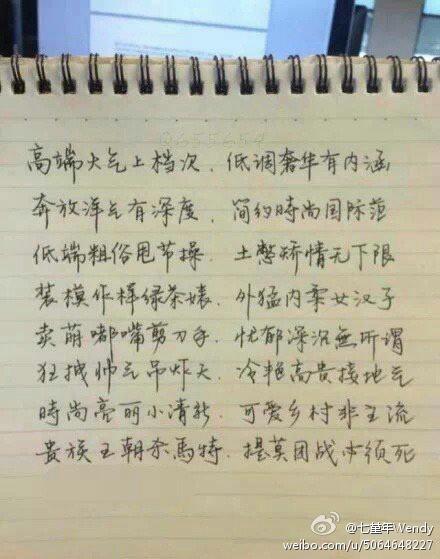 0655654
高端大气上档次．低调奢华有内涵
奔放洋气有深度．简约時尚国际范
低端粗俗甩节操．土憋矫情无下限
装模作样绿茶婊．外猛内柔女汉子
卖萌嘟嘴剪刀手．忧郁深沉無所谓
狂拽帅气吊炸天．冷艳高贵接地气
時尚亮丽小清新．可爱乡村非主流
贵族王朝杀馬特．提莫团战必须死
@七堇年Wendy
weibo.com/u/5064648227